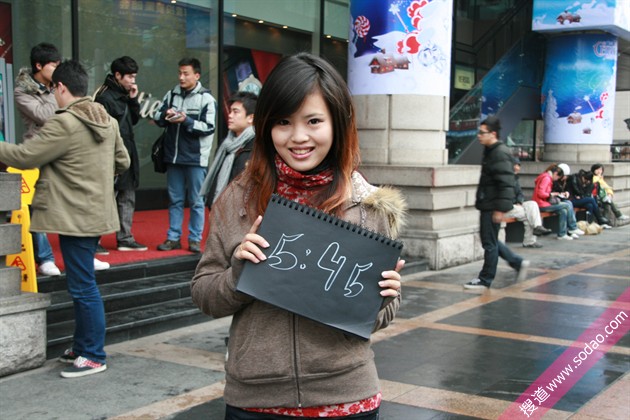 5:45
搜道 www.sodao.com